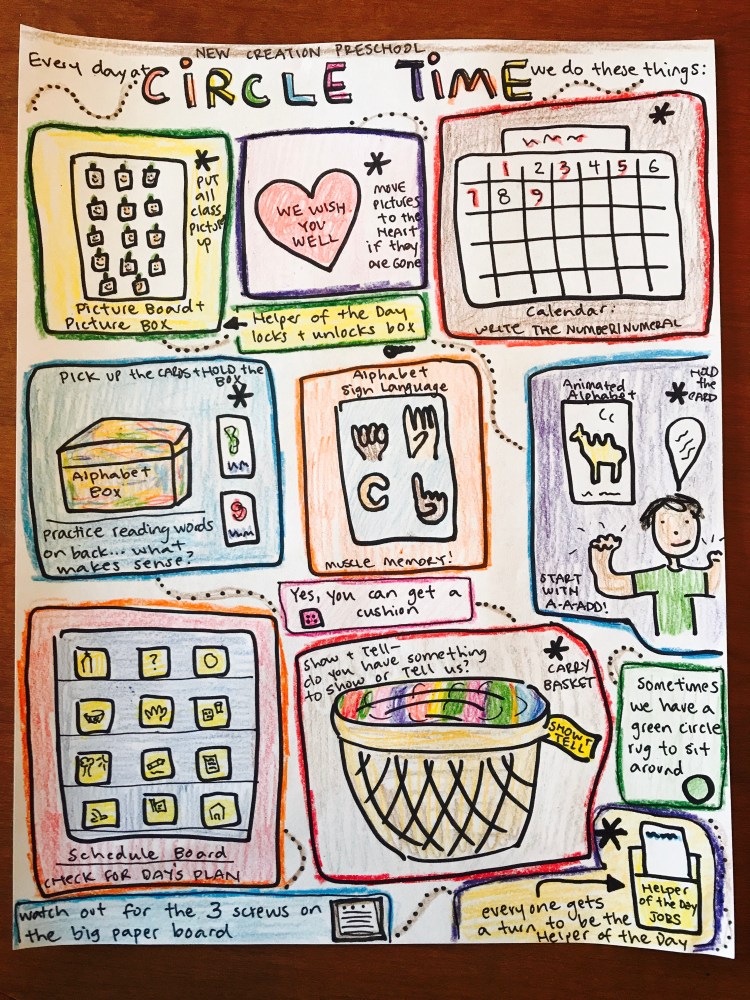 NEW CREATION PRESCHOOL
Every day at
CiRCLE TiME
we do these things:
* PUT
all
class
pictures
up
Picture Board +
Picture BOX
WE WISH
YOU
WELL
* MOVE
PICTURES
to the
HEART
if they
are GONE
Helper of the Day
locks + unlocks box
*
1 2 3 4 5 6
7 8 9
Calendar:
WRITE THE NUMBER/NUMERAL
PICK UP the CARDS + HOLD the
BOX
*
Alphabet
Box
practice reading words
on back... what
makes sense?
Alphabet
Sign Language
C
MUSCLE MEMORY!
Animated
Alphabet
* HOLD
the
CARD
Cc
START
WITH
A-A-ADD!
Yes, you can get a
cushion
?
Schedule Board
CHECK FOR DAYS PLAN
Show + Tell-
do you have something
to show or Tell us?
* CARRY
BASKET
SHOW +
TELL
Sometimes
we have a
green circle
rug to sit
around
watch out for the 3 screws on
the big paper board
*
everyone gets
a turn to be the
Helper of the Day
HELPER
of the Day
JOBS